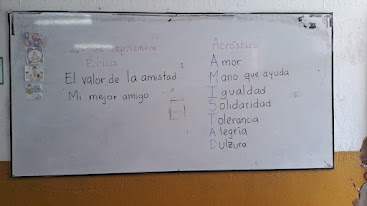 de septiembre
Rúbrica
El valor de la amistad
Mi mejor amigo
Acróstico
Amor
Mano que ayuda
Igualdad
Solidaridad
Tolerancia
Alegría
Dulzura